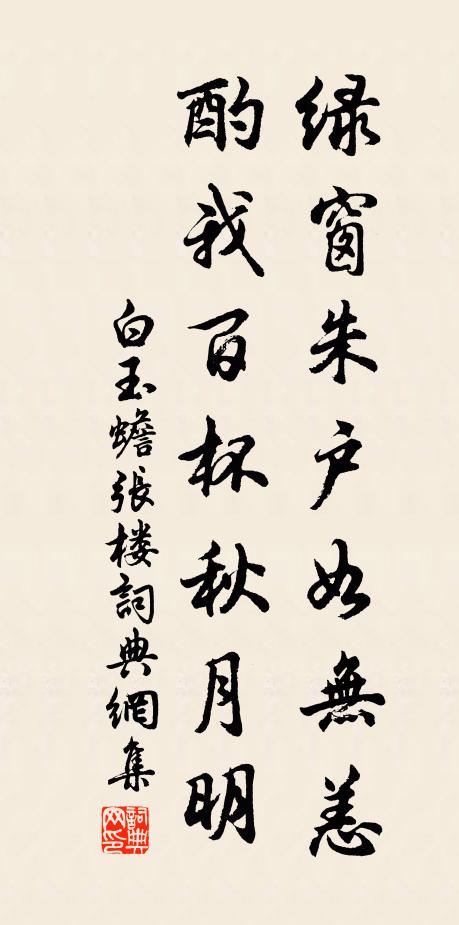 绿窗朱户如無恙
酌我百杯秋月明
白玉蟾張楼詞典網集
詞典網印